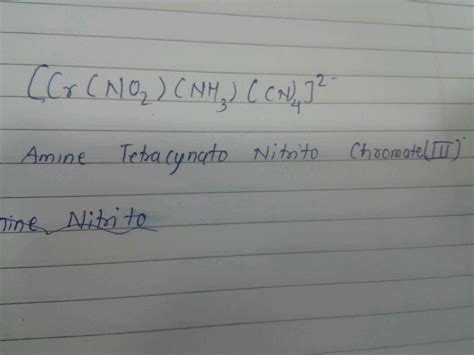 [Cr(NO₂)(NH₃)(CN)₄]²⁻
Amine Tetracynato Nitrito Chromate(III)
mine Nitrito